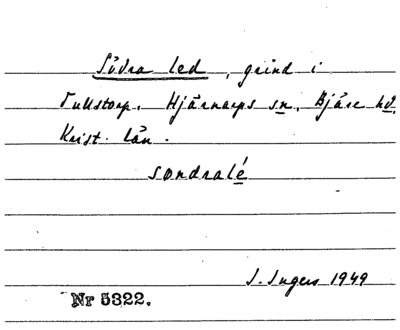 Södra led, grind i
Tullstorp. Hjärnarps sn. Bjäre hd.
Krist. län.
søndralé
I. Ingers 1949
Nr 5322.